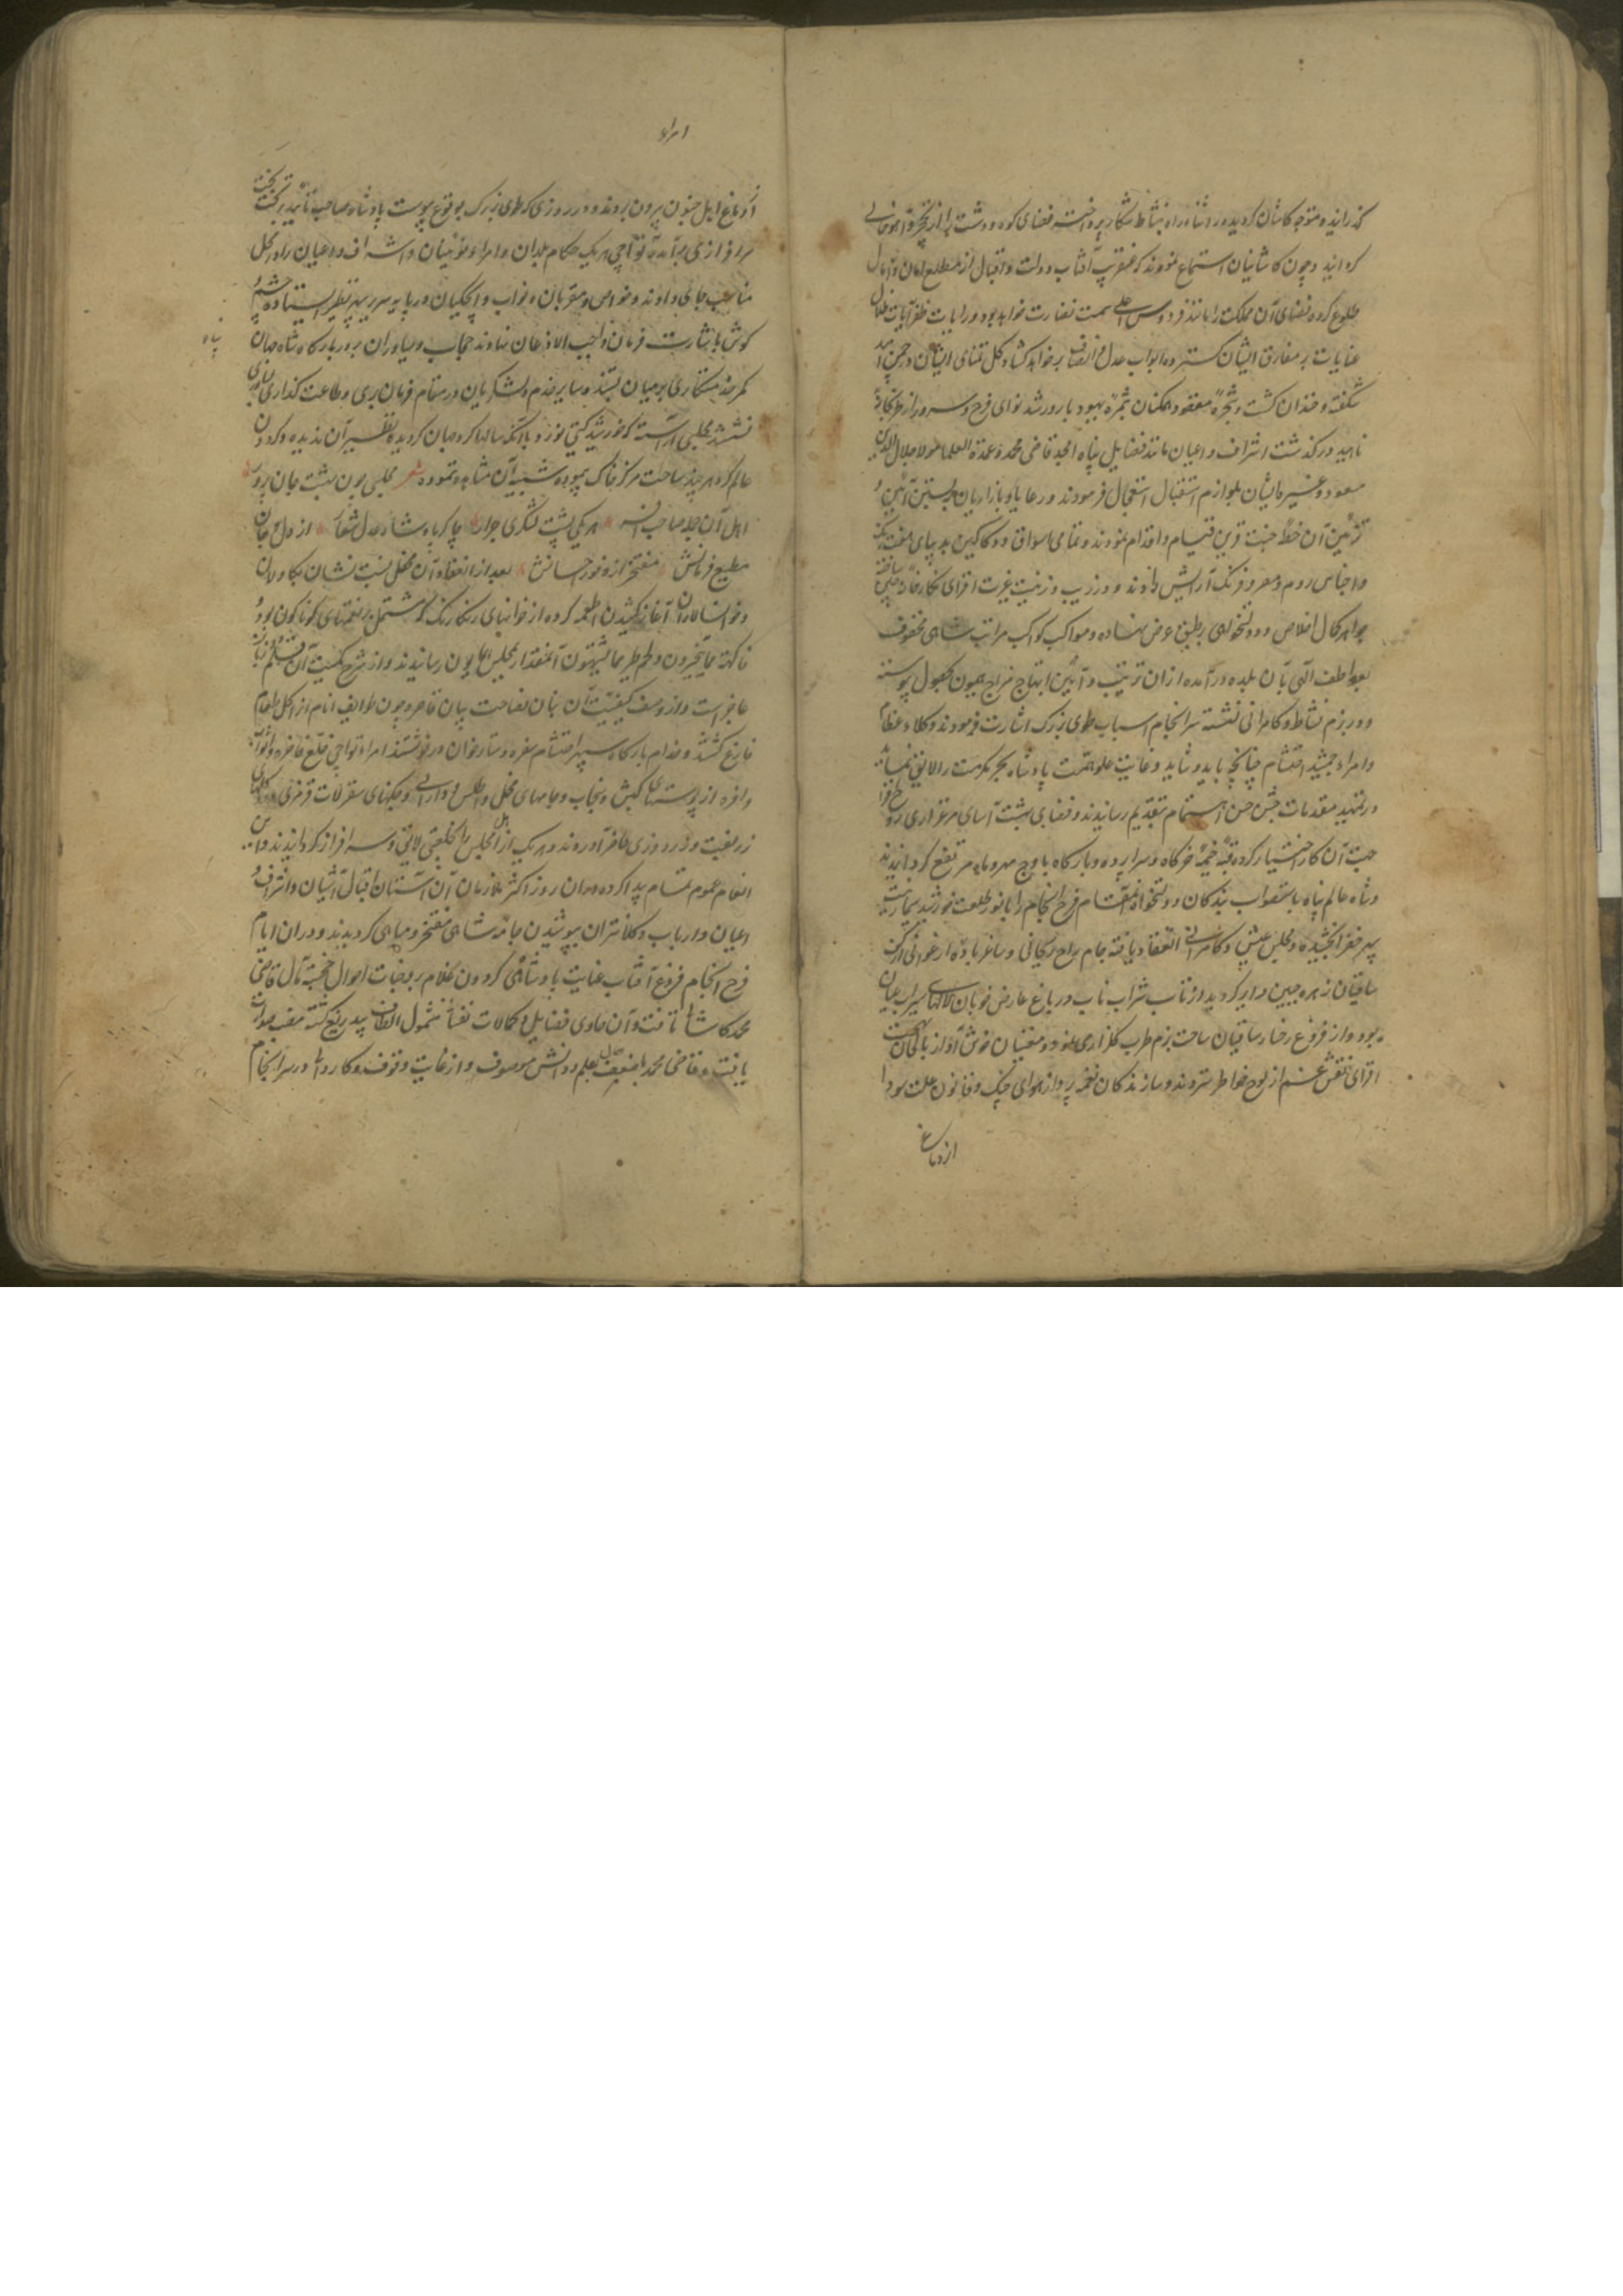 گذرانید و متوجه کاشان گردیده در اثناء راه بنشاط شکار پرداخت فضای کوه و دشت را از نخجیر و آهو خالی
گردانید و چون کاشانیان استماع نمودند که عنقریب آفتاب دولت و اقبال از مطلع امان و آمال
طلوع کرده فضای آن مملکت را مانند فردوس اعلی سمت نضارت خواهد بود و رایات ظفر آیات ظلال
عنایات بر مفارق ایشان گسترده ابواب عدل و انصاف بر خواهد گشاد گل تمنای ایشان در چمن امید
شکفته و خندان گشت و شجره مقصود همگنان بثمره بهبود بارور شد نوای فرح و سرور از
ناهید در گذشت اشراف و اعیان مانند فضایل پناه امجد قاضی محمد و عمدة العلما مولا جلال الدین
مسعود و غیر هما ایشان بلوازم استقبال استعجال فرمودند و رعایا و بازاریان به بستن آئین و
تزئین آن خطه جنت قرین قیام و اقدام نمودند و تمامی اسواق و دکاکین به دیبای هفت رنگ
و اجناس روم و مصر و فرنگ آرایش دادند و در زیب و زینت غیرت افزای نگارخانه چین ساخته
جواهر کمال اخلاص و دولتخواهی بر طبق عرض نهاده و مواکب کواکب مراتب شاهی محفوف
بعواطف الهی بآن بلده درآمده از آن ترتیب و آئین ابتهاج مزاج همیون بحصول پیوسته
و در بزم نشاط و کامرانی نشسته سرانجام اسباب طوی بزرگ اشارت فرمودند وکلاء عظام
و امراء جمشید احتشام چنانچه باید و شاید و غایت علو همت پادشاه بحر مکرمت را لایق نماید
در تمهید مقدمات جشن حسن اهتمام بتقدیم رسانیدند و فضای بهشت آسای مرغزاری روح افزا
جهت آن کار اختیار کرده قبه خیمه و خرگاه و سراپرده و بارگاه باوج مهر و ماه مرتفع گردانیدند
و شاه عالم پناه باستصواب بندگان دولتخواه آن مقام فرح انجام را بانور طلعت خورشید
سپهر خضرا بخشیده و مجلس عیش و کامرانی انعقاد یافته جام راح ریحانی و ساغر باده ارغوانی از کف
ساقیان زهره جبین دایر گردید از تاب شراب ناب در باغ عارض خوبان لالهای سیراب عیان
بود و از فروغ رخسار ساقیان ساحت بزم طرب گلزاری نمود و مغنیان خوش آواز بالحان بهجت
افزای نقش غم از لوح خواطر ستردند و سازندگان نغمه پرداز بنوای چنگ و قانون علت سودا
از دماغ
امراء
از دماغ اهل جنون بیرون بردند و در روزی که طوی بزرگ بوقوع پیوست پادشاه صاحب تأیید بر تخت
سرافرازی برآمده تواچی هر یک حکام بلدان و امراء نوئینان و اشراف و اعیان را در محل
مناسب جای دادند و خواص و مقربان و نواب و ایچکیان در پایه سریر سپهر نظیر ایستاده چشم و
گوش باشارت فرمان واجب الاذعان نهادند حجاب و یساولان بر در بارگاه شاه جهان
پناه
کمر خدمتکاری بر میان بستند و سایر خدم و لشکریان در مقام فرمان بری و طاعت گذاری
نشستند مجلسی آراسته که خورشید گیتی نورد با آنکه سالها گرد جهان گردیده نظیر آن ندیده و گردون
عالم گرد هر چند ساحت مرکز خاک پیموده شبیه آن مشاهده ننموده شعر مجلسی چون بهشت جان پرور
اهل آن جمله صاحب افسر هر یکی پشت لشکری جرار چاکر پادشاه عدل شعار از دل و جان
مطیع فرمانش مفتخر از وفور احسانش بعد از انعقاد آن محفل بهشت نشان بکاولان
و خوانسالاران آغاز کشیدن اطعمه کرده از خوانهای رنگارنگ که مشتمل بر نعمتهای گوناگون بود
فاکهة مما یتخیرون و لحم طیر مما یشتهون آنمقدار بمجلس همایون رسانیدند و از شرح کمیت آن قلم و زبان
عاجز است و از وصف کیفیت آن بنان فصاحت بیان قاصر و چون طوایف انام از اکل طعام
فارغ گشتند و خدام بارگاه سپهر احتشام سفره و دستارخوان در نوشتند امراء تواچی خلع فاخره و اثواب
وافره از پوستنهای کیش و سنجاب و جامهای مخمل و اطلس و دارائی و چکنهای سقرلات قرمزی و کلاههای
زربفت و زردوزی حاضر آوردند و هر یک از اهل مجلس را بخلعتی لایق سرافراز گردانیدند و این
انعام عموم تمام پیدا کرده در آن روز اکثر ملازمان آن آستان اقبال آشیان و اشراف و
اعیان و ارباب و کلانتران بپوشیدن جامه شاهی مفتخر و مباهی گردیدند و در آن ایام
فرح انجام فروغ آفتاب عنایت پادشاهی گردون غلام بر وجنات احوال خجسته مآل قاضی
محمد کاشانی تافت و آن حاوی فضایل و کمالات نفسانی مشمول الطاف بیدریغ گشته منصب صدارت
یافت و قاضی محمد بعلم و دانش موصوف و از غایت وقوف و کاردانی در سرانجام